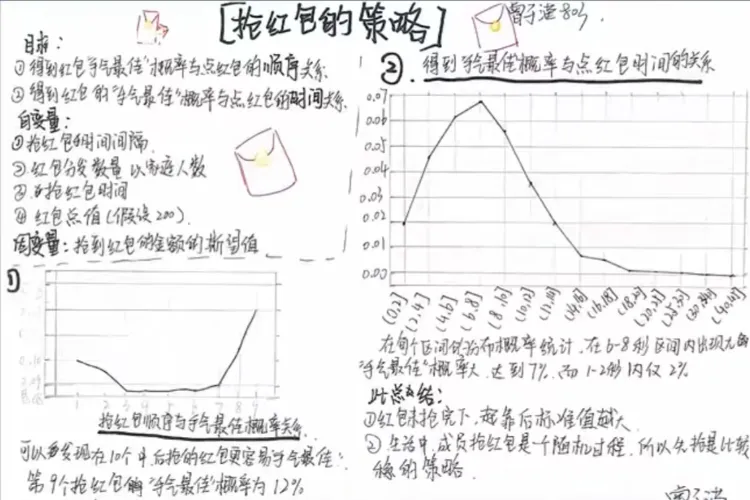 [抢红包的策略]
目标：
①得到红包"手气最佳"概率与点红包的顺序关系
②得到红包的"手气最佳"概率与点红包的时间关系
自变量：
①抢红包的时间间隔
②红包分发数量以家庭人数
③抢红包时间
④红包总值(假设200)
因变量：抢到红包的金额的期望值
①
0.10
0.09
1 2 3 4 5 6 7 8 9
抢红包顺序与手气最佳概率关系
可以发现在10个中,后抢的红包更容易"手气最佳"
第9个抢红包的"手气最佳"概率为12%
②.得到"手气最佳"概率与点红包时间的关系
0.07
0.06
0.05
0.04
0.03
0.02
0.01
0.00
(0,2] (2,4] (4,6] (6,8] (8,10] (10,12] (12,14] (14,16] (16,18] (18,20]
在每个区间做分布概率统计，在6-8秒区间内出现
"手气最佳"概率大，达到7%，而1-2秒内仅2%
总结：
①红包未抢完下，越靠后标准值越大
②生活中,成员抢红包是一个随机过程，所以先抢是比较
稳的策略